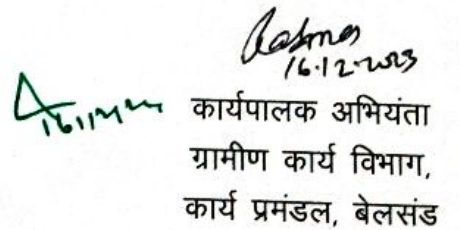 16.12.2023
कार्यपालक अभियंता
ग्रामीण कार्य विभाग,
कार्य प्रमंडल, बेलसंड